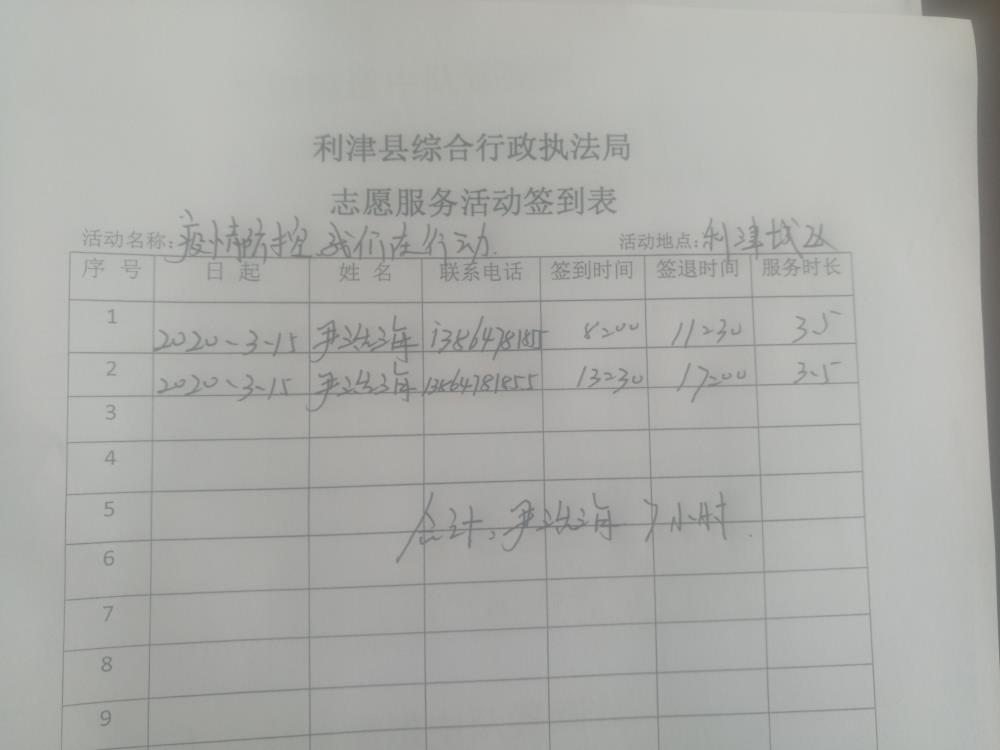 利津县综合行政执法局
志愿服务活动签到表
活动名称：疫情防控，我们在行动. 活动地点：利津城区
序 号 日 起 姓 名 联系电话 签到时间 签退时间 服务时长
1 2020-3-15 尹洪海 13864781855 8:00 11:30 3.5
2 2020-3-15 尹洪海 13864781855 13:30 17:00 3.5
3
4
5
合计：尹洪海 7小时.
6
7
8
9